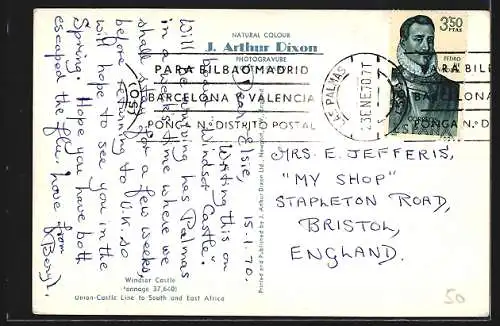 NATURAL COLOUR
J. Arthur Dixon
PHOTOGRAVURE
PARA BILBAO MADRID
BARCELONA O VALENCIA
PONGA N.º DISTRITO POSTAL
LAS PALMAS
23 ENE 70
3'50
PTAS
PEDRO
PARA BILB
BARCELON
PONGA N.º D
15.1.70.
Dear Elsie,
Writing this on
board "Windsor Castle".
Will be arriving Las Palmas
in a weeks time where we
shall stay for a few weeks,
before returning to U.K. so
will hope to see you in the
Spring. Hope you have both
escaped the flu. Love from
Beryl.
MRS. E. JEFFERIS,
"MY SHOP"
STAPLETON ROAD,
BRISTOL,
ENGLAND.
Printed and Published by J. Arthur Dixon Ltd.
Windsor Castle
(tonnage 37,640)
Union-Castle Line to South and East Africa
50